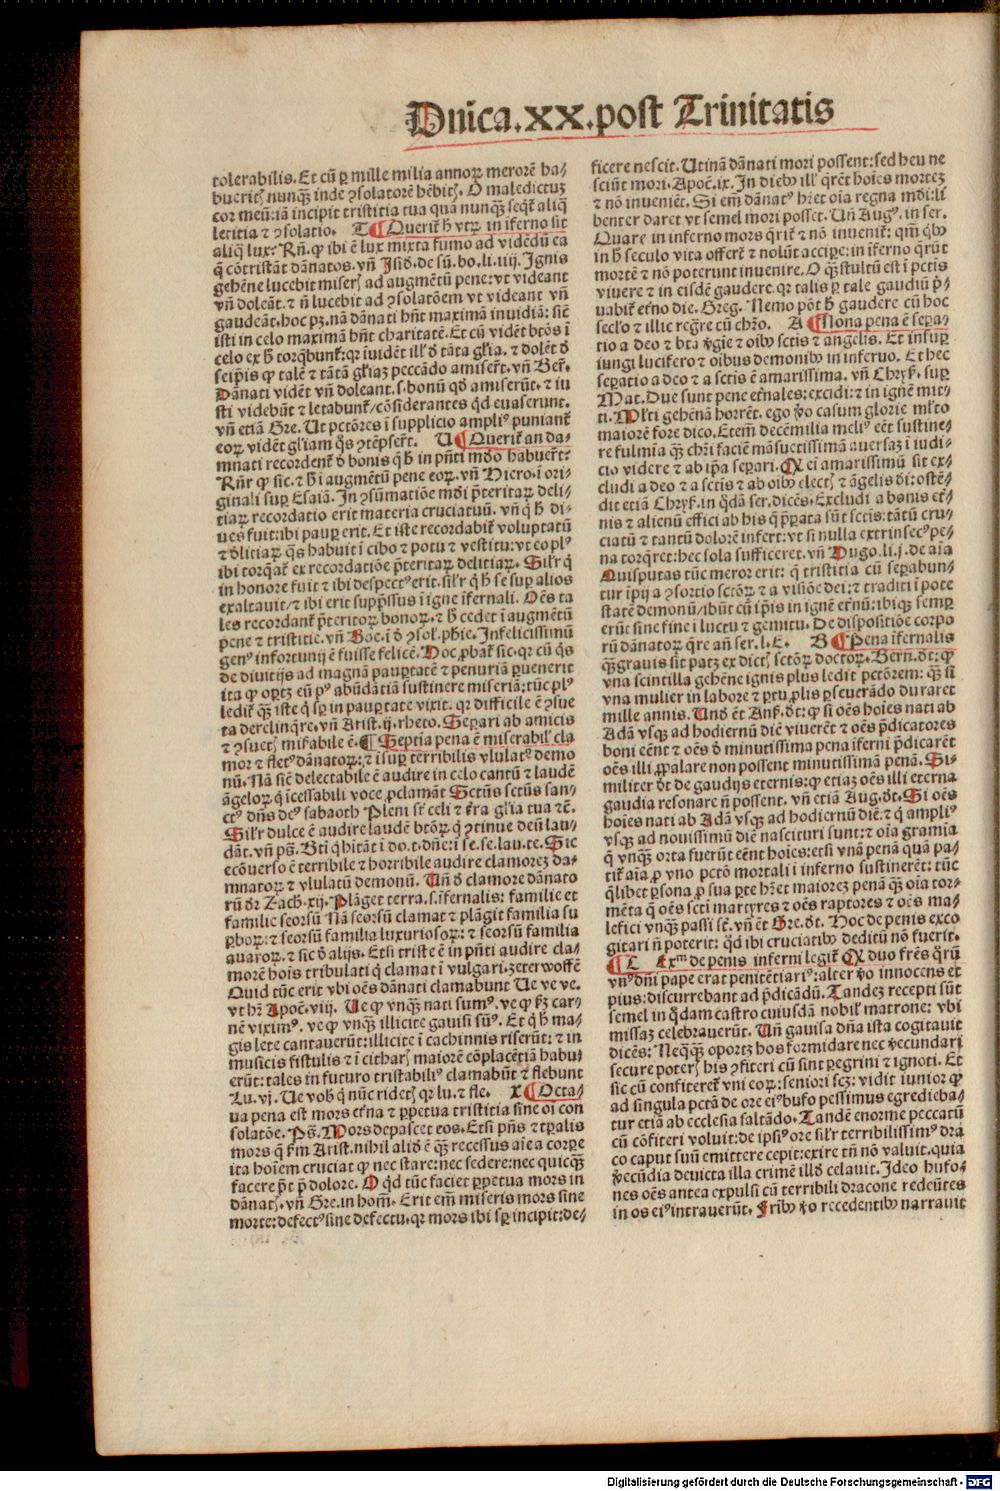 Dnica.XX.post Trinitatis
tolerabilis. Et cū ꝑ mille milia annoꝝ merorē ha⸗
buerit nunqꝫ inde ꝯsolatorē hēbit. O maledictuꝫ
cor meū: iā incipit tristitia tua quā nunqꝫ seqt̄ aliq̄
letitia ⁊ ꝯsolatio. T ¶ Querit̄ h̄ vtꝝ in īferno sit
aliq̄ lux: Rn̄. ꝙ ibi ē lux mixta fumo ad vidēdū ea
q̄ cōtristāt dānatos. vn̄ Isid. de sū. bo. li. iiij. Ignis
gehēne lucebit miser ad augmētū pene: vt videant
vn̄ doleāt. ⁊ n̄ lucebit ad ꝯsolatōem vt videant vn̄
gaudeāt. hoc pꝫ. nā dānati hn̄t maximā inuidiā: sic̄
isti in celo maximā hn̄t charitatē. Et cū vidēt btōs ī
celo ex h̄ torqbunt̄: qꝛ īuidēt ill' ꝺ tāta gl'ia. ⁊ dolēt ꝺ
seip̄is ꝙ talē ⁊ tātā gl'iaꝫ peccādo amiser̄t. vn̄ Ber.
Dānati vidēt vn̄ doleant. s. bonū qd̄ amiserūt. ⁊ iu
sti videbūt ⁊ letabunt̄/ cōsiderantes qd̄ euaserunt.
vn̄ etiā Gre. Ut pctōres ī supplicio ampliꝰ puniant̄
eoꝝ vidēt gl'iam qs̄ ꝯtēpser̄t. U ¶ Querit̄ an da⸗
mnati recordent̄ ꝺ bonis q̄ h̄ in pn̄ti mdo habuer̄t:
Rn̄r ꝙ sic. ⁊ h̄ ī augmētū pene eoꝝ. vn̄ Hiero. ī ori⸗
ginali suꝑ Esaiā. In ꝯsūmatiōe mdi p̄teritaꝝ deli⸗
tiaꝝ recordatio erit materia cruciatuū. vn̄ q̄ h̄ di⸗
ues fuit: ibi pauꝑ erit. Et iste recordabit̄ voluptatū
⁊ ꝺlitiaꝝ qs̄ habuit ī cibo ⁊ potu ⁊ vestitu: vt eo plꝰ
ibi torqat̄ ex recordatiōe p̄teritaꝝ delitiaꝝ. Sil'r q̄
in honore fuit ⁊ ibi despectꝰ erit. sil'r q̄ h̄ se suꝑ alios
exaltauit/ ⁊ ibi erit supp̄ssus ī igne īfernali. Oēs ta
les recordant̄ p̄teritoꝝ bonoꝝ. ⁊ h̄ cedet ī augmētū
pene ⁊ tristitie. vn̄ Boe. ī ꝺ ꝯsol. phie. Infelicissimū
genꝰ infortunij ē fuisse felicē. Hoc ꝓbat̄ sic. qꝛ cū qs̄
de diuitijs ad magnā pauꝑtatē ⁊ penuriā ꝑuenerit
ita ꝙ oꝑtꝫ eū pꝰ abūdātiā sustinere miseriā: tūc plꝰ
ledit̄ qꝫ iste q̄ sꝑ in pauꝑtate vixit. qꝛ difficile ē ꝯsue
ta derelinq̄re. vn̄ Arist. ij. rheto. Seꝑari ab amicis
⁊ ꝯsuet mirabile ē. ¶ Septīa pena ē miserabil' cla
mor ⁊ fletꝰ dānatoꝝ: ⁊ īsuꝑ terribilis vlulatꝰ demo
nū. Nā sic̄ delectabile ē audire in celo cantū ⁊ laudē
āgeloꝝ q̄ īcessabili voce ꝓclamāt Sctūs sctūs san⸗
ctꝰ dn̄s deꝰ sabaoth Pleni sr̄ celi ⁊ t̄ra gl'ia tua ⁊c̄.
Sil'r dulce ē audire laudē btōꝝ q̄ ꝯtinue deū lau⸗
dāt. vn̄ ps̄. Bti q̄ hitāt ī do. t. dn̄e: ī se. se. lau. te. Sic
ecōuerso ē terribile ⁊ horribile audire clamoreꝫ da⸗
mnatoꝝ ⁊ vlulatū demonū. Un̄ ꝺ clamore dānato
rū ꝺr Zach. xij. Plāget terra. s. īfernalis: familie et
familie seorsū Nā seorsū clamat ⁊ plāgit familia su
ꝑboꝝ: ⁊ seorsū familia luxuriosoꝝ: ⁊ seorsū familia
auaroꝝ. ⁊ sic ꝺ alijs. Etsi triste ē in pn̄ti audire cla⸗
morē hois tribulati q̄ clamat ī vulgari. zeter woffē
Quid tūc erit vbi oēs dānati clamabunt Ue ve ve.
vt hr̄ Apoc. viij. Ue ꝙ vnqꝫ nati sumꝰ. ve ꝙ ẜm car⸗
nē viximꝰ. ve ꝙ vnqꝫ illicite gauisi sūꝰ. Et q̄ h̄ ma⸗
gis lete cantauerūt: illicite ī cachinnis riserūt: ⁊ in
musicis fistulis ⁊ ī cithar maiorē cōplacētiā habu⸗
erūt: tales in futuro tristabiliꝰ clamabūt ⁊ flebunt
Lu. vj. Ue vob q̄ nūc ridet qꝛ lu. ⁊ fle. X ¶ Octa⸗
ua pena est mors et̄na ⁊ ꝑpetua tristitia sine oī con
solatōe. Ps̄. Mors depascet eos. Etsi pn̄s ⁊ tꝑalis
mors q̄ ẜm Arist. nihil aliud ē qꝫ recessus aīe a corꝑe
ita hoīem cruciat ꝙ nec stare: nec sedere: nec quicqꝫ
facere p̄t p̄ dolore. O qd̄ tūc faciet ꝑpetua mors in
dānat. vn̄ Gre. in hom̄. Erit em̄ miseris mors sine
morte: defectꝰ sine defectu. qꝛ mors ibi sꝑ incipit: de⸗
ficere nescit. Utinā dānati mori possent: sed heu ne
sciūt mori. Apoc̄. ix. In dieb ill' qrēt hoīes morteꝫ
⁊ nō inueniēt. Si em̄ dānatꝰ hr̄et oīa regna mdi: li
benter daret vt semel mori posset. Un̄ Augꝰ. in ser.
Quare in inferno mors qrit̄ ⁊ nō inuenit̄: qm̄ qb
in h̄ seculo vita offert̄ ⁊ nolūt accipe: in īferno qrūt
mortē ⁊ nō poterunt inuenire. O qꝫ stultū est ī pctis
viuere ⁊ in eisdē gaudere. qꝛ talis ꝑ tale gaudiū p̄⸗
uabit̄ et̄no die. Greg. Nemo pōt h̄ gaudere cū hoc
secl'o ⁊ illic regre cū chr̄o. A ¶ Nona pena ē seꝑa⸗
tio a deo ⁊ bta v̄gie ⁊ oīb sctis ⁊ angelis. Et insuꝑ
iungi lucifero ⁊ oibus demonib in inferuo. Et hec
seꝑatio a deo ⁊ a sctis ē amarissima. vn̄ Chryẜ. suꝑ
Mat. Due sunt pene et̄nales: excidi: ⁊ in ignē mit⸗
ti. Ml'ti gehēnā horrēt. ego ꝟo casum glorie ml'to
maiorē fore dico. Etem̄ decē milia meliꝰ eēt sustine⸗
re fulmia qꝫ chr̄i faciē māsuetissimā auersaꝫ ī iudi⸗
cio videre ⁊ ab ip̄a seꝑari. Q ei amarissimū sit ex⸗
cludi a deo ⁊ a sctis ⁊ ab oib elect ⁊ āgelis dī: ostē⸗
dit etiā Chryẜ. in qdā ser. dicēs. Excludi a bonis et̄⸗
nis ⁊ alienū effici ab his q̄ p̄ꝑata sūt sctis: tātū cru⸗
ciatū ⁊ tantū dolorē infert: vt si nulla extrinsecꝰ pe⸗
na torqret: hec sola sufficeret. vn̄ Hugo. li. j. de aīa
Quis putas tūc meror erit: q̄ tristitia cū seꝑabun⸗
tur īpij a ꝯsortio sctōꝝ ⁊ a visiōe dei: ⁊ traditi ī pote
statē demonū/ ibūt cū ip̄is in ignē et̄nū: ibiqꝫ semꝑ
erūt sine fine ī luctu ⁊ gemitu. De dispositiōe corpo
rū dānatoꝝ qre an̄ ser. l. E. B ¶ Pena īfernalis
qꝫ grauis sit patꝫ ex dict sctōꝝ doctoꝝ. Bern. ꝺt: ꝙ si
vna scintilla gehēne ignis plus ledit pctōrem: qꝫ si
vna mulier in labore ⁊ ꝑtu ꝓlis ꝑseuerādo duraret
mille annis. Und ēt Anẜ. ꝺt: ꝙ si oēs hoīes nati ab
Adā vsqꝫ ad hodiernū diē viuerēt ⁊ oēs p̄dicatores
boni eēnt ⁊ oēs ꝺ minutissima pena īferni p̄dicarēt
oēs illi ꝓpalare non possent minutissimā penā. Si⸗
militer ꝺt de gaudijs eternis: ꝙ etiaꝫ oēs illi eterna
gaudia resonare n̄ possent. vn̄ etiā Aug. ꝺt. Si oēs
hoīes nati ab Adā vsqꝫ ad hodiernū diē: ⁊ q̄ ampliꝰ
vsqꝫ ad nouissimū diē nascituri sunt: ⁊ oīa gramia
q̄ vnqꝫ orta fuerūt eēnt hoīes: etsi vnā penā quā pa⸗
tit̄ aīa ꝓ vno pctō mortali ī inferno sustinerēt: tūc
qlibet ꝑsona ꝓ sua ꝑte hr̄et maioreꝫ penā qꝫ oīa tor⸗
mēta q̄ oēs scti martyres ⁊ oēs raptores ⁊ oēs ma⸗
lefici vnqꝫ passi st̄. vn̄ ēt Gre. ꝺt. Hoc de penis exco
gitari n̄ poterit: qd̄ ibi cruciatib deditū nō fuerit.
¶ C Exᵐ de penis inferni legit̄ Q duo fres qrū
vnꝰ dn̄i pape erat penitētiariꝰ: alter ꝟo innocens et
pius: discurrebant ad p̄dicādū. Tandeꝫ recepti sūt
semel in qdam castro cuiusdā nobil' matrone: vbi
missaꝫ celebrauerūt. Un̄ gauisa dn̄a ista cogitauit
dicēs: Neqꝫqꝫ oportꝫ hos formidare nec ꝟecundari
secure poter his ꝯfiteri cū sint ꝑegrini ⁊ ignoti. Et
sic cū confiteret̄ vni eoꝝ: seniori scꝫ: vidit iunior ꝙ
ad singula pctā de ore eiꝰ bufo pessimus egredieba⸗
tur etiā ab ecclesia saltādo. Tandē enorme peccatū
cū cōfiteri voluit: de ipsiꝰ ore sil'r terribilissimꝰ dra
co caput suū emittere cepit: exire tn̄ nō valuit. quia
ꝟecūdia deuicta illa crimē illd celauit. Ideo bufo⸗
nes oēs antea expulsi cū terribili dracone redeūtes
in os eiꝰ intrauerūt. Frib ꝟo recedentib narrauit
Digitalisierung gefördert durch die Deutsche Forschungsgemeinschaft - DFG